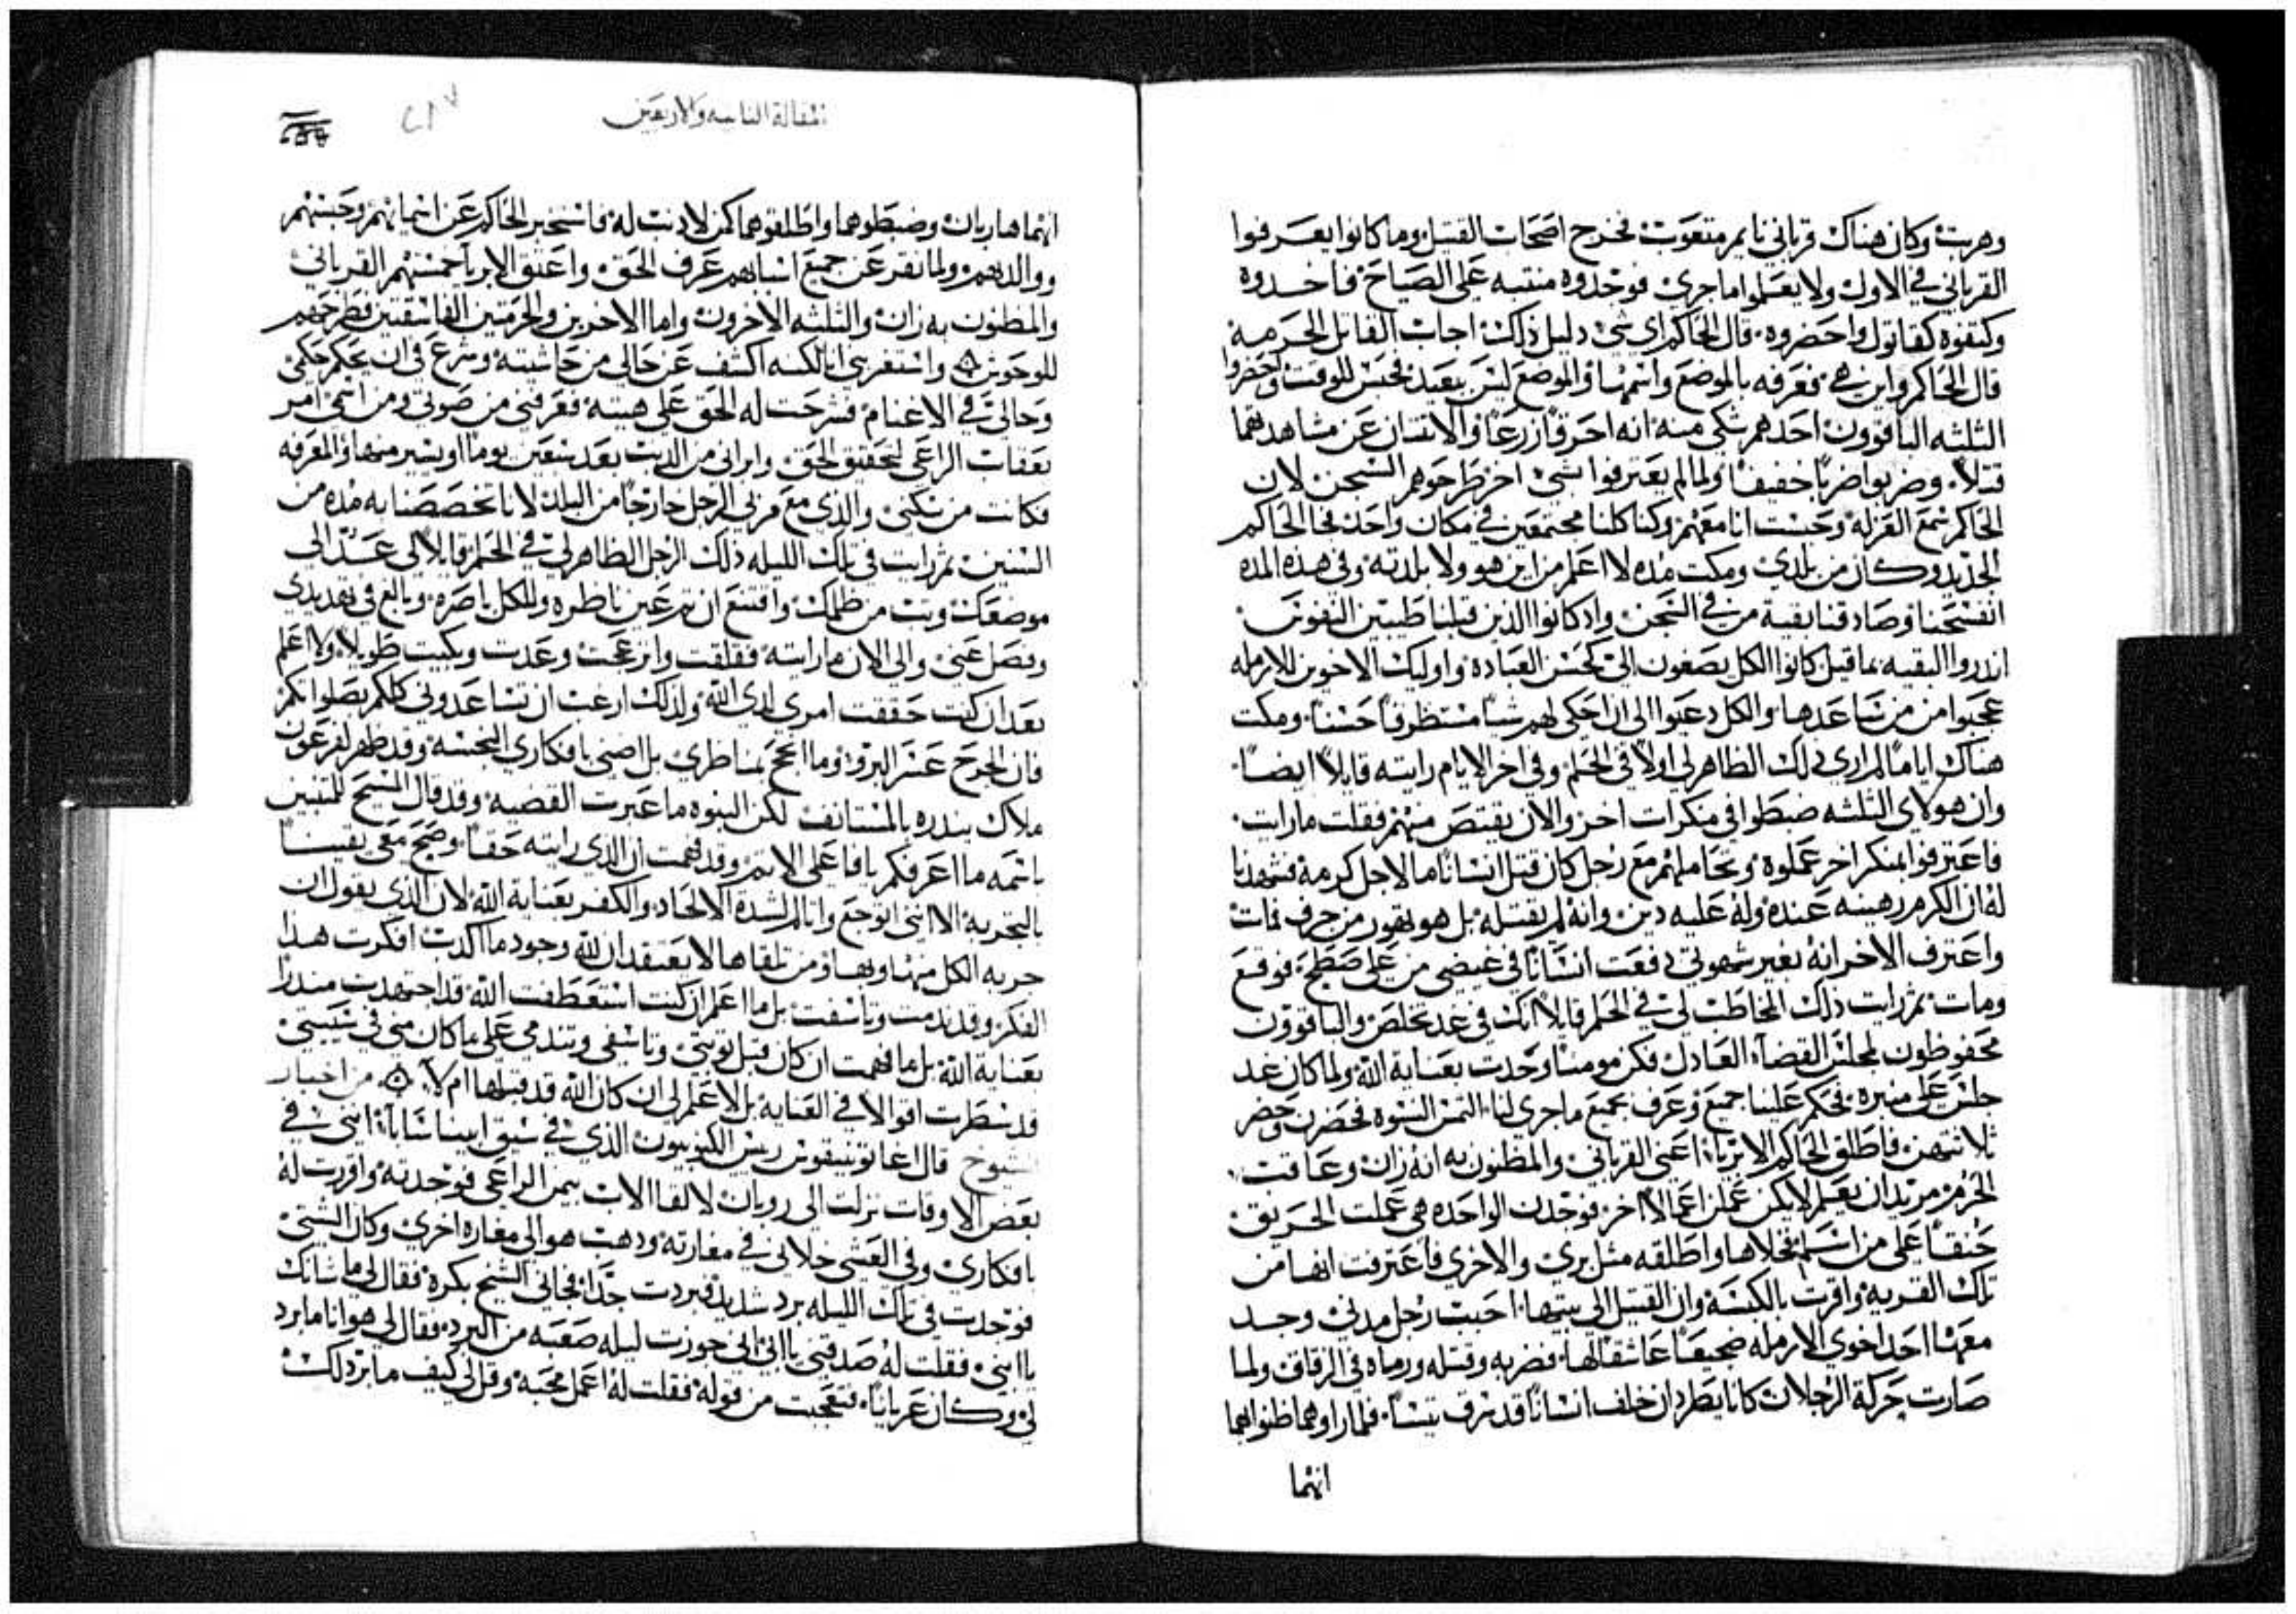 وهربت وكان هناك قرباني نايم متعوب فخرج اصحاب القتيل وما كانوا يعرفوا
القرباني في الاول ولا يعلموا ما جري فوجدوه منتبه علي الصياح فاخدوه
وكتفوه كقاتول واحضروه قال الحاكم اي شي دليل ذلك اجاب القاتل الحرمه
قال الحاكم واين هي فعرفه بالموضع واسمها والموضع ليس ببعيد فحبس للوقت واحضروا
الثلثه الباقوون احدهم شكي منه انه احرق زرعا والاتنان عن مشاهدهما
قتلا وضربوا ضربا خفيفا ولما لم يعترفوا بشي اخر طرحوهم السجن لان
الحاكم سمع العزله وحبست انا معهم وكنا كلنا مجتمعين في مكان واحد فجا الحاكم
الجديد وكان من بلدي ومكت مده لا اعلم من اين هو ولا بلدته وفي هذه المده
انفسحنا وصادقنا بقية من في السجن واد كانوا الذين قبلنا طيبين النفوس
اندروا البقيه بما قيل كانوا الكل يصغون الي كحسن العباده واوليك الاخوين للارمله
عجبوا من من ساعدها والكل دعيوا الي ان احكي لهم شيا مستظرفا حسنا ومكت
هناك اياما لم اري دلك الظاهر لي اولا في الحلم وفي اخر الايام رايته قايلا ايضا
وان هولاي الثلثه ضبطوا في منكرات اخر والان يقتص منهم فقلت ما رايت
فاعترفوا بمنكر اخر عملوه وتحاملهم مع رجل كان قتل انسانا ما لاجل كرمه فشهدنا
له ان الكرم رهينه عنده وله عليه دين وانه لم يقتله بل هو تهور من جرف فمات
واعترف الاخر انه بغير شهوتي دفعت انسانا في غيضي من علي صطح فوقع
ومات ثم رايت ذلك المخاطب لي في الحلم قايلا انك في غد تخلص والباقوون
محفوظون لمجلس القضاء العادل فكن مومنا وحدت بعناية الله ولما كان غد
جلس علي منبره فحكم علينا جميع وعرف بجميع ما جري لنا التمس النسوه فحضرن وحضر
ثلاتتهن فاطلق الحاكم الابريا اعني القرباني والمظنون به انه زان وعاقب
الحرم مريدان يعلم لايكن عملن اعمالا اخر فوجدت الواحده هي عملت الحريق
حنقا علي من اسلم فخلاها واطلقه مثل بري والاخري فاعترفت انها من
تلك القريه واقرت بالكبسة وان القتيل الي بيتها احبت رجل مدني وجد
معها احد اخوي الارمله صحيعا عاشقا لها فضربه وقتله ورماه في الزقاق ولما
صارت حركة الرجلان كانا يطردان خلف انسانا قد سرق تيسا فلما راوهما ظنوا بهما
انهما
المقالة الثامنه والاربعين
انهما هاربان وضبطوهما واطلقوهما كمن لا دنب له فاستخبر الحاكم عن اسمايهم وجنسهم
ووالديهم ولما نقر عن جميع اسبابهم عرف الحق واعتق الابريا خمستهم القرباني
والمظنون به زان والثلثه الاخرون واما الاخوين والحرمتين الفاسقتين فطرحهم
للوحوش واستغربني انا لكنه اكشف عن حالي من حاشيته وشرع في ان يحكم حكمي
وحالي في الاغنام فشرحت له الحق علي هيته فعرفني من صوتي ومن اسمي امر
بعقاب الراعي لتحقيق الحق وابراني من الذنب بعد سبعين يوما او يسير منها والمعرفه
فكانت من سكني والدي مع مربي الرجل خارجا من البلد لانا تخصصنا به مده من
السنين ثم رايت في تلك الليله ذلك الرجل الظاهر لي في الحلم قايلا لي عد الي
موضعك وتب من ظلمك واقتنع ان تم عين ناظره وللكل باصره وبالغ في تهديدي
وفصل عني والي الان ما رايته فقلقت وانزعجت وعدت وبكيت طويلا ولا اعلم
بعد ان كنت حققت امري لدي الله ولذلك ارغب ان تساعدوني كلكم بصلواتكم
فان الجرح عسر البرو وما انجح بمناظري بل اضني بافكاري النجسه وقد ظهر لفرعون
ملاك ينذره بالمستانف لكن النبوه ما عبرت القضيه وقد قال المسيح للمتنبين
باسمه ما اعرفكم يا فاعلي الاثم وقد فهمت ان الذي رايته حقا وصح معي يقينا
بالتجربه الا انني اتوجع وانا لم لشدة الالحاد والكفر بعناية الله لان الذي يقول ان
حربه الكل منها وبها ومن تلقاها لا يعتقد ان لله وجود ما اكدب افكرت هذا
الفكر وقد ندمت وتاسفت بل ما اعلم ان كنت استعطفت الله قد اجتهدت منذرا
بعناية الله بل ما فهمت ان كان قبل توبتي وتاسفي وتندمي علي ما كان مني في شبيبتي
قد سطرت اقوالا في العنايه بل لا اعلم لي ان كان الله قد قبلها ام لا من اخبار
الشيوخ قال اغاتونيقوس ريس الكنوبيون الذي في سيق ابينا سابا انني في
بعض الاوقات نزلت الي روبان لالقا الاب بيمن الراعي فوجدته واقررت له
بافكاري وفي العشي خلاني في مغارته ودهب هو الي مغاره اخري وكان الشتي
فوجدت في تلك الليله برد شديد فبردت جدا فجاني الشيخ بكرة فقال لي ما شانك
يا ابني فقلت له صدقني يا ابي اني جوزت ليله صعبه من البرد فقال لي هو انا ما برد
لي وكان عريانا فتعجبت من قوله فقلت له اعمل محبه وقل لي كيف ما برد لك